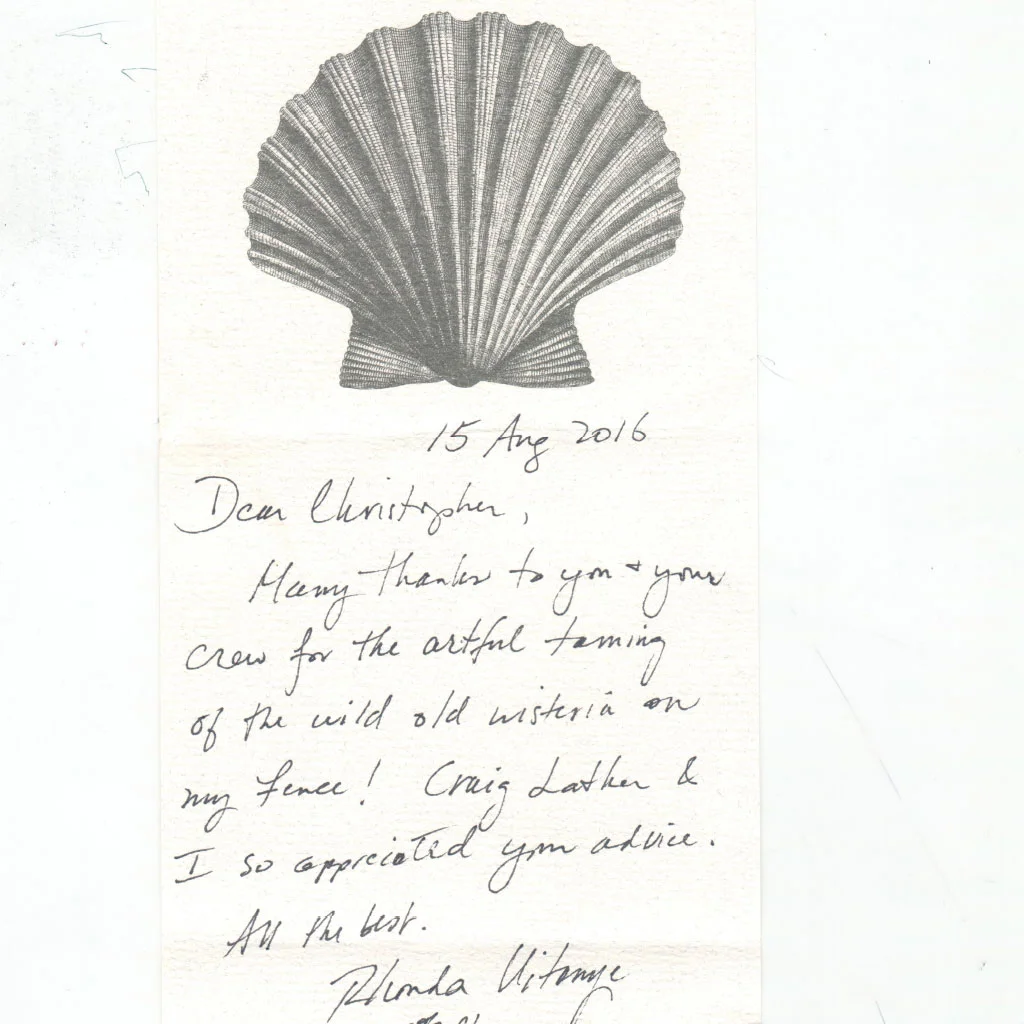 15 Aug 2016
Dear Christopher,
Many thanks to you + your
crew for the artful taming
of the wild old wisteria on
my fence! Craig Lather &
I so appreciated your advice.
All the best.
Rhonda